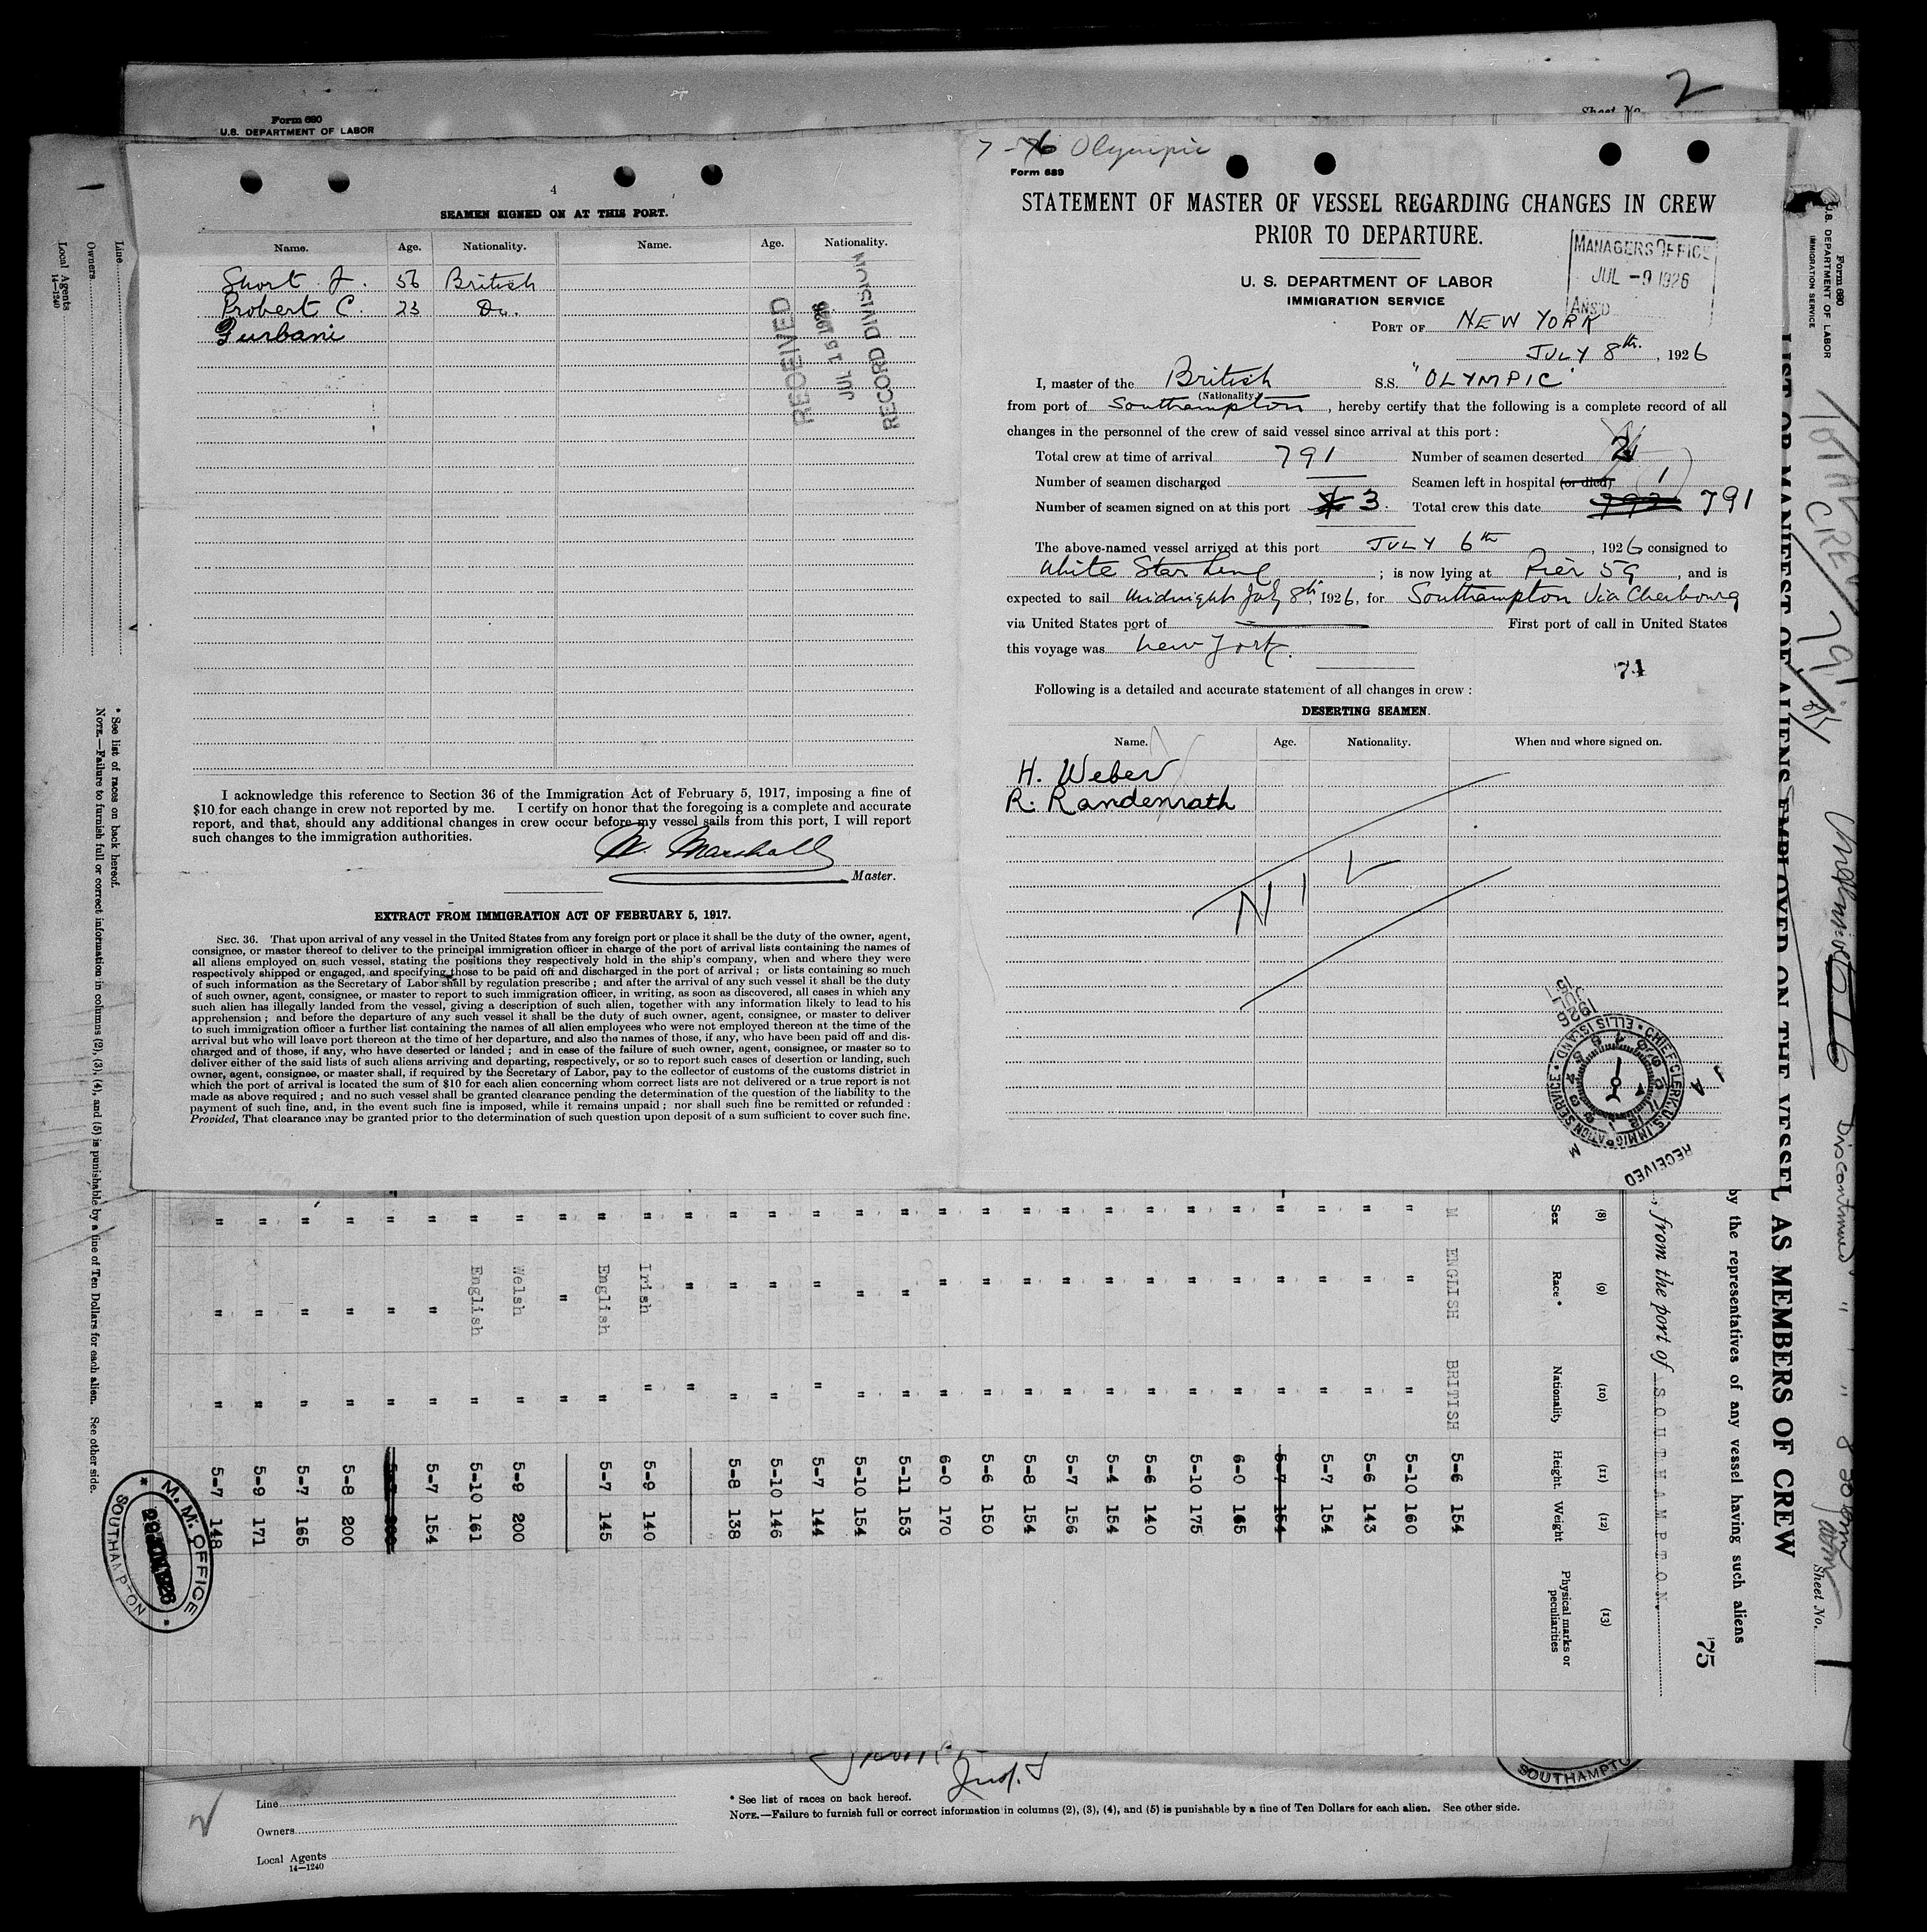 2
Sheet No.
Form 680
U.S. DEPARTMENT OF LABOR
4
SEAMEN SIGNED ON AT THIS PORT.
Name. Age. Nationality. Name. Age. Nationality.
Short J. 56 British
Probert C. 23 Do.
Gurbani
RECEIVED
JUL 15 1926
RECORD DIVISION
I acknowledge this reference to Section 36 of the Immigration Act of February 5, 1917, imposing a fine of
$10 for each change in crew not reported by me. I certify on honor that the foregoing is a complete and accurate
report, and that, should any additional changes in crew occur before my vessel sails from this port, I will report
such changes to the immigration authorities.
W. Marshall
Master.
EXTRACT FROM IMMIGRATION ACT OF FEBRUARY 5, 1917.
SEC. 36. That upon arrival of any vessel in the United States from any foreign port or place it shall be the duty of the owner, agent,
consignee, or master thereof to deliver to the principal immigration officer in charge of the port of arrival lists containing the names of
all aliens employed on such vessel, stating the positions they respectively hold in the ship's company, when and where they were
respectively shipped or engaged, and specifying those to be paid off and discharged in the port of arrival; or lists containing so much
of such information as the Secretary of Labor shall by regulation prescribe; and after the arrival of any such vessel it shall be the duty
of such owner, agent, consignee, or master to report to such immigration officer, in writing, as soon as discovered, all cases in which any
such alien has illegally landed from the vessel, giving a description of such alien, together with any information likely to lead to his
apprehension; and before the departure of any such vessel it shall be the duty of such owner, agent, consignee, or master to deliver
to such immigration officer a further list containing the names of all alien employees who were not employed thereon at the time of the
arrival but who will leave port thereon at the time of her departure, and also the names of those, if any, who have been paid off and dis-
charged and of those, if any, who have deserted or landed; and in case of the failure of such owner, agent, consignee, or master so to
deliver either of the said lists of such aliens arriving and departing, respectively, or so to report such cases of desertion or landing, such
owner, agent, consignee, or master shall, if required by the Secretary of Labor, pay to the collector of customs of the customs district in
which the port of arrival is located the sum of $10 for each alien concerning whom correct lists are not delivered or a true report is not
made as above required; and no such vessel shall be granted clearance pending the determination of the question of the liability to the
payment of such fine, and, in the event such fine is imposed, while it remains unpaid; nor shall such fine be remitted or refunded:
Provided, That clearance may be granted prior to the determination of such question upon deposit of a sum sufficient to cover such fine.
7-6 Olympic
Form 689
STATEMENT OF MASTER OF VESSEL REGARDING CHANGES IN CREW
PRIOR TO DEPARTURE.
U. S. DEPARTMENT OF LABOR
IMMIGRATION SERVICE
MANAGERS OFFICE
JUL -9 1926
ANS'D
PORT OF NEW YORK
JULY 8th. , 1926
I, master of the British S.S. "OLYMPIC"
(Nationality)
from port of Southampton , hereby certify that the following is a complete record of all
changes in the personnel of the crew of said vessel since arrival at this port:
Total crew at time of arrival 791 Number of seamen deserted 2
Number of seamen discharged Seamen left in hospital (or died) 1
Number of seamen signed on at this port 3. Total crew this date 792 791
The above-named vessel arrived at this port JULY 6th , 1926 consigned to
White Star Line ; is now lying at Pier 59 , and is
expected to sail Midnight July 8th, 1926, for Southampton Via Cherbourg
via United States port of First port of call in United States
this voyage was New York.
71
Following is a detailed and accurate statement of all changes in crew:
DESERTING SEAMEN.
Name. Age. Nationality. When and where signed on.
H. Weber
R. Randenrath
NIL
1926 JUL 15
CHIEF CLERK, U.S. IMMIGRATION SERVICE • ELLIS ISLAND •
RECEIVED
Form 680
U.S. DEPARTMENT OF LABOR
IMMIGRATION SERVICE
TOTAL CREW 791
Discontinued " " " 8 30 pm
Sheet No.
LIST OR MANIFEST OF ALIENS EMPLOYED ON THE VESSEL AS MEMBERS OF CREW
by the representatives of any vessel having such aliens
75
, from the port of SOUTHAMPTON.
(8) (9) (10) (11) (12) (13)
Sex Race * Nationality Height Weight Physical marks or peculiarities
M ENGLISH BRITISH 5-6 154
" " " 5-10 160
" " " 5-6 143
" " " 5-7 154
" " " 5-7 154
" " " 6-0 165
" " " 5-10 175
" " " 5-6 140
" " " 5-4 154
" " " 5-7 156
" " " 5-8 154
" " " 5-6 150
" " " 6-0 170
" " " 5-11 153
" " " 5-10 154
" " " 5-7 144
" " " 5-10 146
" " " 5-8 138
" " "
" Irish " 5-9 140
" English " 5-7 145
" " "
" Welsh " 5-9 200
" English " 5-10 161
" " " 5-7 154
" " "
" " " 5-8 200
" " " 5-7 165
" " " 5-9 171
" " " 5-7 148
M. M. OFFICE
SOUTHAMPTON
Line
Owners
Local Agents
14-1240
* See list of races on back hereof.
NOTE.—Failure to furnish full or correct information in columns (2), (3), (4), and (5) is punishable by a fine of Ten Dollars for each alien. See other side.
SOUTHAMPTO
Line
Owners
Local Agents
14-1240
* See list of races on back hereof.
NOTE.—Failure to furnish full or correct information in columns (2), (3), (4), and (5) is punishable by a fine of Ten Dollars for each alien. See other side.